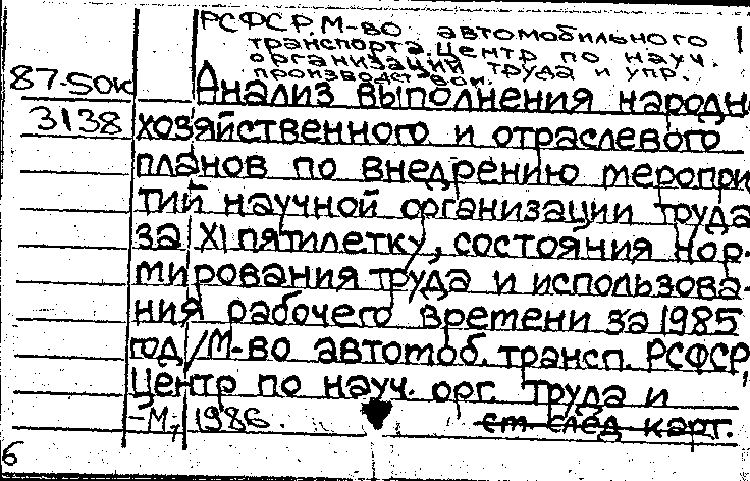 РСФСР. М-во автомобильного
транспорта. Центр по науч.
организации труда и упр.
производством.
87-50к
Анализ выполнения народно
3138
хозяйственного и отраслевого
планов по внедрению меропри
тий научной организации труда
за XI пятилетку, состояния нор-
мирования труда и использова-
ния рабочего времени за 1985
год / М-во автомоб. трансп. РСФСР,
Центр по науч. орг. труда и
- М, 1986.
ст след карт.
6